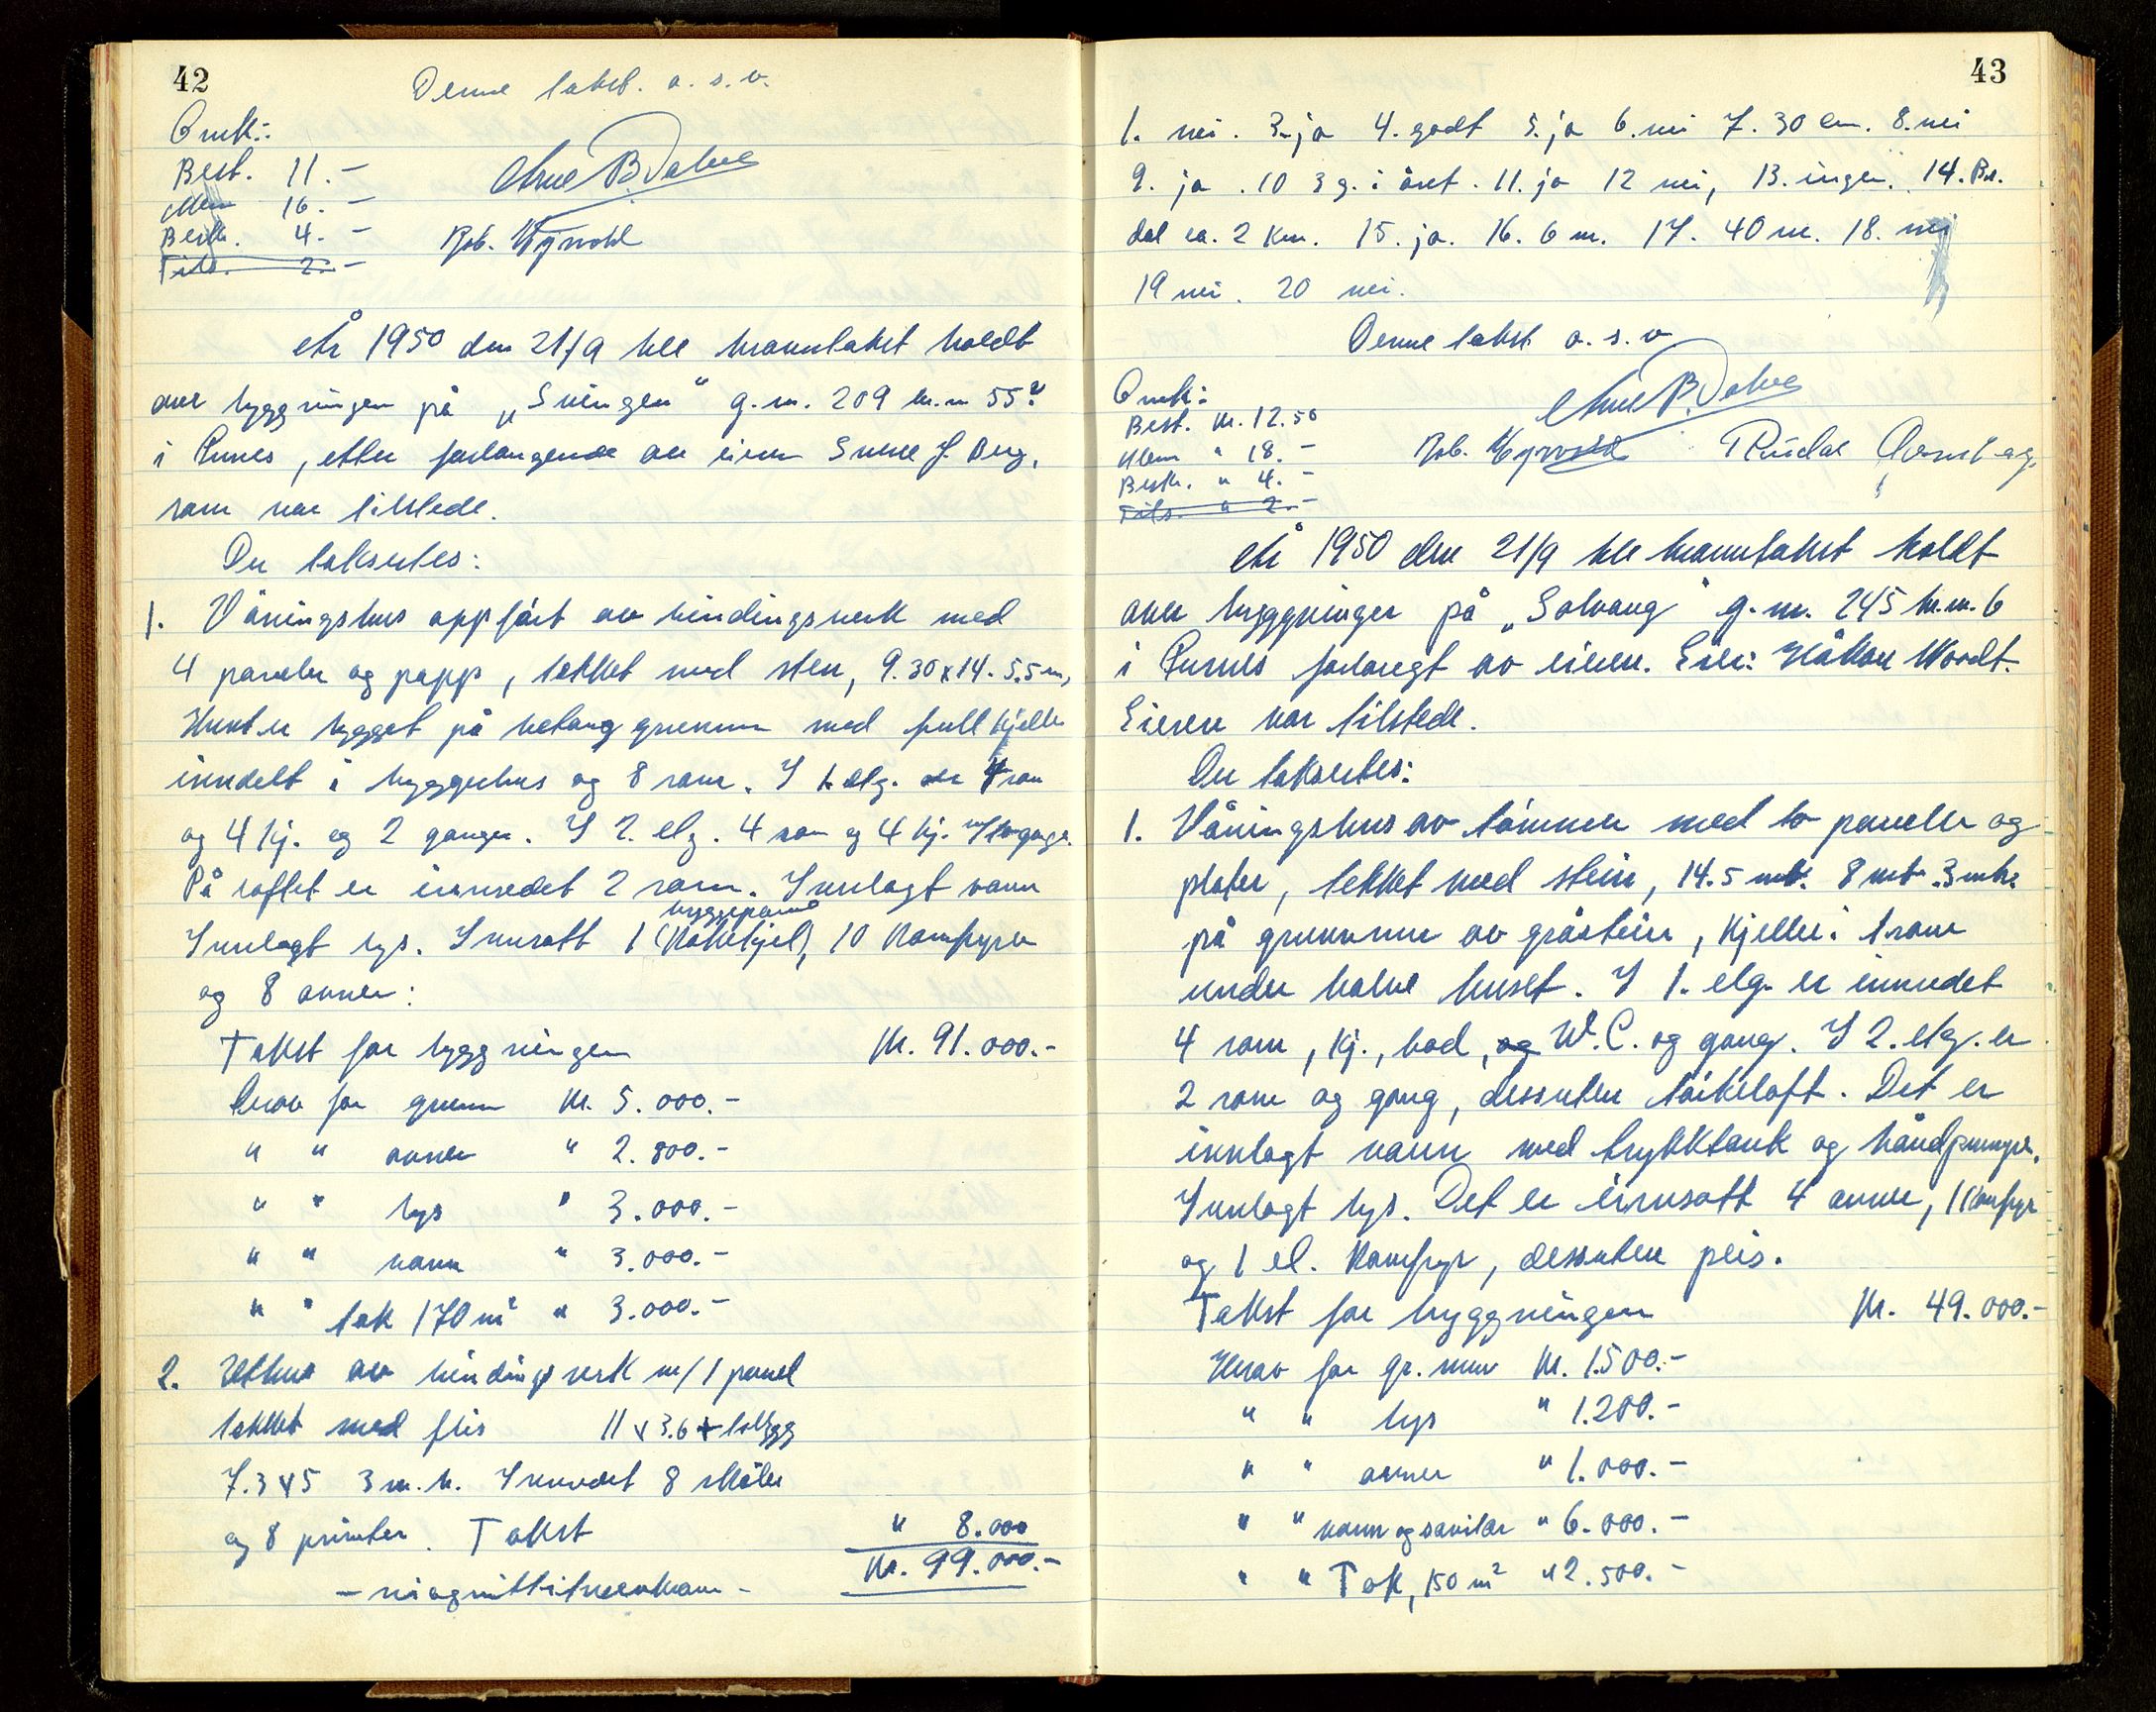 42
Denne takst. o.s.v.
Omk.:
Best. 11.-
Mem 16.-
Besk. 4.-
Tils. 2.-
Arne B. Dalve
Rob.
År 1950 den 21/9 ble branntakst holdt
over byggningen på „Svingen" g.nr. 209 br.nr 55?
i Furnes, etter forlangende av eieren Sverre J. Berg,
som var tilstede.
Der taksertes:
1. Våningshus oppført av bindingsverk med
4 paneler og papp, tekket med sten, 9.30x14. 5.5m,
Huset er bygget på betong grunnmur med full kjeller
inndelt i bryggerhus og 8 rom. I 1. etg. er 4 rom
og 4 kj. og 2 ganger. I 2. etg. 4 rom og 4 kj. og ganger.
På loftet er innredet 2 rom. Innlagt vann
Innlagt lys. Innsatt 1 (kokekjel), bryggepanne 10 komfyrer
og 8 ovner:
Takst for byggningen Kr. 91.000.-
Derav for grunnm Kr. 5.000.-
" " ovner " 2.800.-
" " lys " 3.000.-
" " vann " 3.000.-
" " tak 170 m² " 3.000.-
2. Uthus av bindingsverk m/1 panel
tekket med flis 11 x 3.6 + tilbygg
7.3 x 5 3 m.h. Innredet 8 skåler
og 8 priveter. Takst " 8.000
Kr. 99.000.-
- niognittitusenkroner -
43
1. nei. 3. ja 4. godt 5. ja 6. nei 7. 30 cm. 8. nei
9. ja. 10 3 g. i året. 11. ja 12 nei, 13. ingen. 14. Br.
dal ca. 2 km. 15. ja. 16. 6 m. 17. 40 m. 18. nei
19 nei. 20 nei.
Denne takst o.s.v
Omk:
Best. Kr. 12.50
Mem " 18.-
Besk. " 4.-
Tils. " 2.-
Arne B. Dalve
Rob.
År 1950 den 21/9 ble branntakst holdt
over byggninger på „Solvang" g.nr. 245 br.nr. 6
i Furnes forlangt av eieren. Eier: Håkon Woldt.
Eieren var tilstede.
Der taksertes:
1. Våningshus av tømmer med to paneler og
plater, tekket med stein, 14.5 mtr. 8 mtr. 3 mtr.
på grunnmur av gråstein, kjeller i 1 rom
under halve huset. I 1. etg. er innredet
4 rom, kj., bod, og W.C. og gang. I 2. etg. er
2 rom og gang, dessuten tørkeloft. Det er
innlagt vann med trykktank og håndpumpe.
Innlagt lys. Det er innsatt 4 ovner, 1 komfyr
og 1 el. komfyr, dessuten peis.
Takst for byggningen Kr. 49.000.-
Herav for gr. mur Kr. 1.500.-
" " lys " 1.200.-
" " ovner " 1.000.-
" " vann og sanitær " 6.000.-
" " Tak, 150 m² " 2.500.-